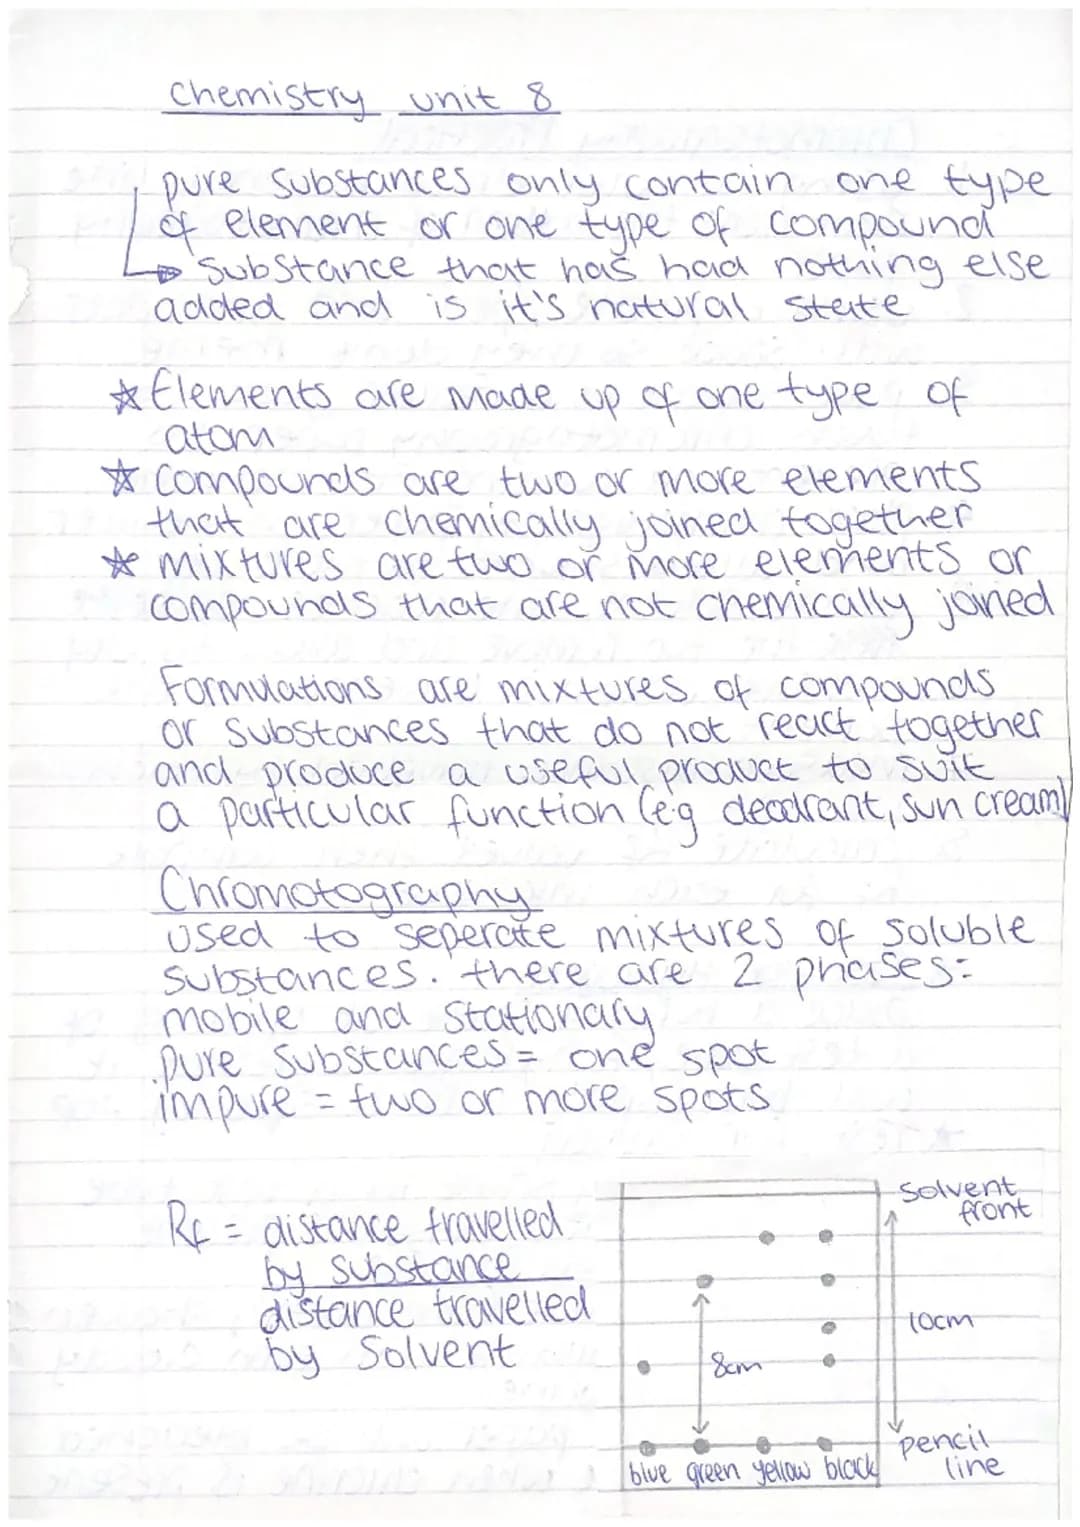 Chemistry unit 8
pure substances only contain one type
of element or one type of compound
substance that has had nothing else
added and is it's natural state
☆ Elements are made up of one type of
atom
☆ Compounds are two or more elements
that are chemically joined together
☆ mixtures are two or more elements or
compounds that are not chemically joined
Formulations are mixtures of compounds
or substances that do not react together
and produce a useful product to suit
a particular function (eg deodrant, sun cream)
Chromotography
used to seperate mixtures of soluble
substances. there are 2 phases:
mobile and stationary
pure substances = one spot
impure = two or more spots
Rf = distance travelled
by substance
distance travelled
by solvent
solvent
front
10cm
8cm
pencil
line
blue green yellow black